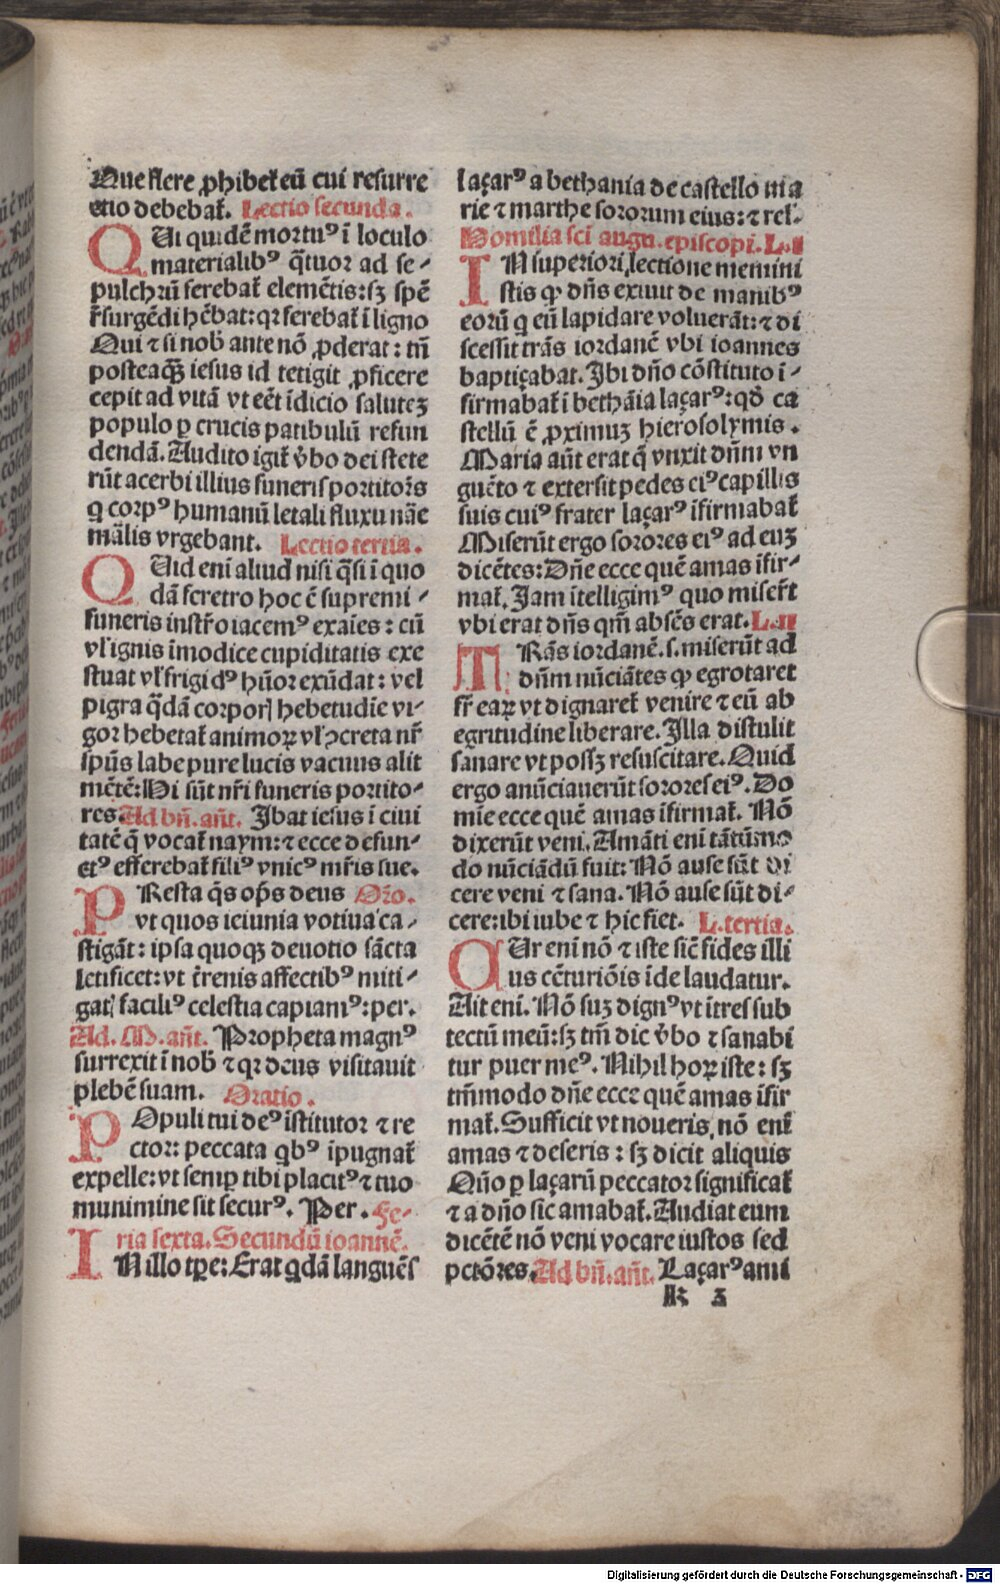 Que flere ꝓhibet̄ eū cui resurre
ctio debebat̄. Lectio secunda.
QUi quidē mortuꝰ ī loculo
materialibꝰ q̄tuor ad se⸗
pulchrū ferebat̄ elemētis: sꝫ spē
r̄surgēdi hēbat: qꝛ ferebat̄ ī ligno
Qui ⁊ si nob̄ ante nō ꝓderat: tm̄
posteaꝙ̄ iesus id tetigit ꝓficere
cepit ad vitā vt eēt īdicio saluteꝫ
populo ꝑ crucis patibulū refun
dendā. Audito igit̄ v̄bo dei stete
rūt acerbi illius funeris portitor̄s
q corpꝰ humanū letali fluxu nāe
mālis vrgebant. Lectio tertia.
QUid enī aliud nisi q̄si ī quo
dā feretro hoc ē supremi⸗
funeris instr̄o iacemꝰ exāies: cū
vl̓ ignis īmodice cupiditatis exe
stuat vl̓ frigidꝰ hūor exūdat: vel
pigra q̄dā corporꝭ hebetudīe vi⸗
gor hebetat̄ animoꝝ vl̓ ꝯcreta nr̄
spūs labe pure lucis vacuus alit
mētē: Hi sūt nr̄i funeris portito⸗
res Ad bn̄. an̄t. Ibat iesus ī ciui
tatē q̄ vocat̄ naym: ⁊ ecce defun⸗
ctꝰ efferebat̄ filiꝰ vnicꝰ mr̄is sue.
PResta q̄s op̄s deus Or̄o.
vt quos ieiunia votiua ca⸗
stigāt: ipsa quoqꝫ deuotio sācta
letificet: vt t̄renis affectibꝰ miti⸗
gatꝭ faciliꝰ celestia capiamꝰ: per.
Ad. M. an̄t. Propheta magnꝰ
surrexit ī nob̄ ⁊ qꝛ deus visitauit
plebē suam. Oratio.
POpuli tui deꝰ īstitutor ⁊ re
ctor: peccata qbꝰ īpugnat̄
expelle: vt semꝑ tibi placitꝰ ⁊ tuo
munimine sit securꝰ. Per. Fe⸗
ria sexta. Secundū ioannē.
IN illo tꝑe: Erat qdā languēs
laçarꝰ a bethania de castello ma
rie ⁊ marthe sororum eius: ⁊ rel̓.
Homilia scī augu. episcopi. L. I
IN superiori lectione memini
stis ꝙ dn̄s exiuit de manibꝰ
eorū q eū lapidare voluerāt: ⁊ di
scessit trās iordanē vbi ioannes
baptiçabat. Ibi dn̄o cōstituto ī⸗
firmabat̄ ī bethāia laçarꝰ: qd̄ ca
stellū ē ꝓximuꝫ hierosolymis.
Maria aūt erat q̄ vnxit dn̄m vn
guēto ⁊ extersit pedes eiꝰ capillis
suis cuiꝰ frater laçarꝰ īfirmabat̄
Miserūt ergo sorores eiꝰ ad euꝫ
dicētes: Dn̄e ecce quē amas īfir⸗
mat̄. Iam ītelligimꝰ quo miser̄t
vbi erat dn̄s qm̄ absēs erat. L. II
TRās iordanē. s. miserūt ad
dn̄m nūciātes ꝙ egrotaret
fr̄ eaꝝ vt dignaret̄ venire ⁊ eū ab
egritudine liberare. Illa distulit
sanare vt possꝫ resuscitare. Quid
ergo anūciauerūt sorores eiꝰ. Do
mīe ecce quē amas īfirmat̄. Nō
dixerūt veni. Amāti enī tātūmo
do nūciādū fuit: Nō ause sūt di
cere veni ⁊ sana. Nō ause sūt di⸗
cere: ibi iube ⁊ hic fiet. L. tertia.
CUr enī nō ⁊ iste sic̄ fides illi
us cēturiōis īde laudatur.
Ait enī. Nō suꝫ dignꝰ vt ītres sub
tectū meū: sꝫ tm̄ dic v̄bo ⁊ sanabi
tur puer meꝰ. Nihil hoꝝ iste: sꝫ
tm̄modo dn̄e ecce quē amas īfir
mat̄. Sufficit vt noueris, nō enī
amas ⁊ deseris: sꝫ dicit aliquis
Quō ꝑ laçarū peccator significat̄
⁊ a dn̄o sic amabat̄. Audiat eum
dicētē nō veni vocare iustos sed
pctōres. Ad bn̄. an̄t. Laçarꝰ ami
k 3
Digitalisierung gefördert durch die Deutsche Forschungsgemeinschaft - DFG